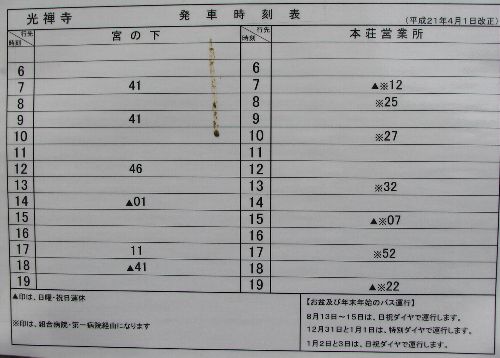 光禅寺 発車時刻表 (平成21年4月1日改正)
行先 時刻 宮の下 行先 時刻 本荘営業所
6 6
7 41 7 ▲※12
8 8 ※25
9 41 9
10 10 ※27
11 11
12 46 12
13 13 ※32
14 ▲01 14
15 15 ▲※07
16 16
17 11 17 ※52
18 ▲41 18
19 19 ▲※22
▲印は、日曜・祝日運休
※印は、組合病院・第一病院経由になります
【お盆及び年末年始のバス運行】
8月13日~15日は、日祝ダイヤで運行します。
12月31日と1月1日は、特別ダイヤで運行します。
1月2日と3日は、日祝ダイヤで運行します。